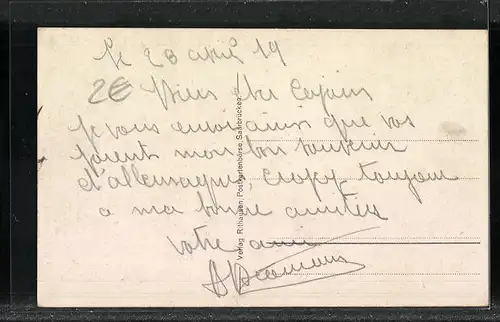 le 23 avril 19
2€ Bien cher Copain
Je vous envoi ainsi que vos
parent mon bon souvenir
d'allemagne croyez toujour
a ma bonne amitiée
Votre ami
Verlag R. Thausen, Postkartenbörse, Saarbrücken